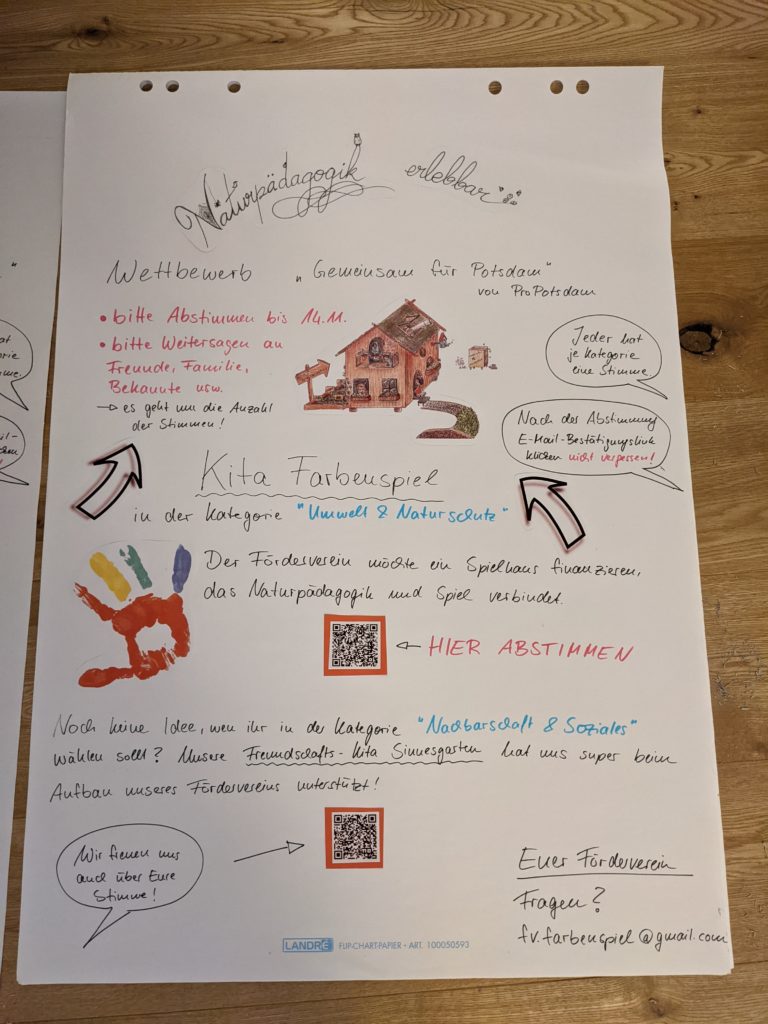 Naturpädagogik erlebbar
Wettbewerb „Gemeinsam für Potsdam"
von ProPotsdam
• bitte Abstimmen bis 14.11.
• bitte Weitersagen an
Freunde, Familie,
Bekannte usw.
→ es geht um die Anzahl
der Stimmen!
Jeder hat
je Kategorie
eine Stimme.
Nach der Abstimmung
E-Mail-Bestätigungslink
klicken nicht vergessen!
Kita Farbenspiel
in der Kategorie "Umwelt & Naturschutz"
Der Förderverein möchte ein Spielhaus finanzieren,
das Naturpädagogik und Spiel verbindet.
← HIER ABSTIMMEN
Noch keine Idee, wen ihr in der Kategorie "Nachbarschaft & Soziales"
wählen sollt? Unsere Freundschafts-Kita Sinnesgarten hat uns super beim
Aufbau unseres Fördervereins unterstützt!
Wir freuen uns
auch über Eure
Stimme!
Euer Förderverein
Fragen?
fv.farbenspiel@gmail.com
LANDRÉ FLIP-CHART-PAPIER • ART. 100050593